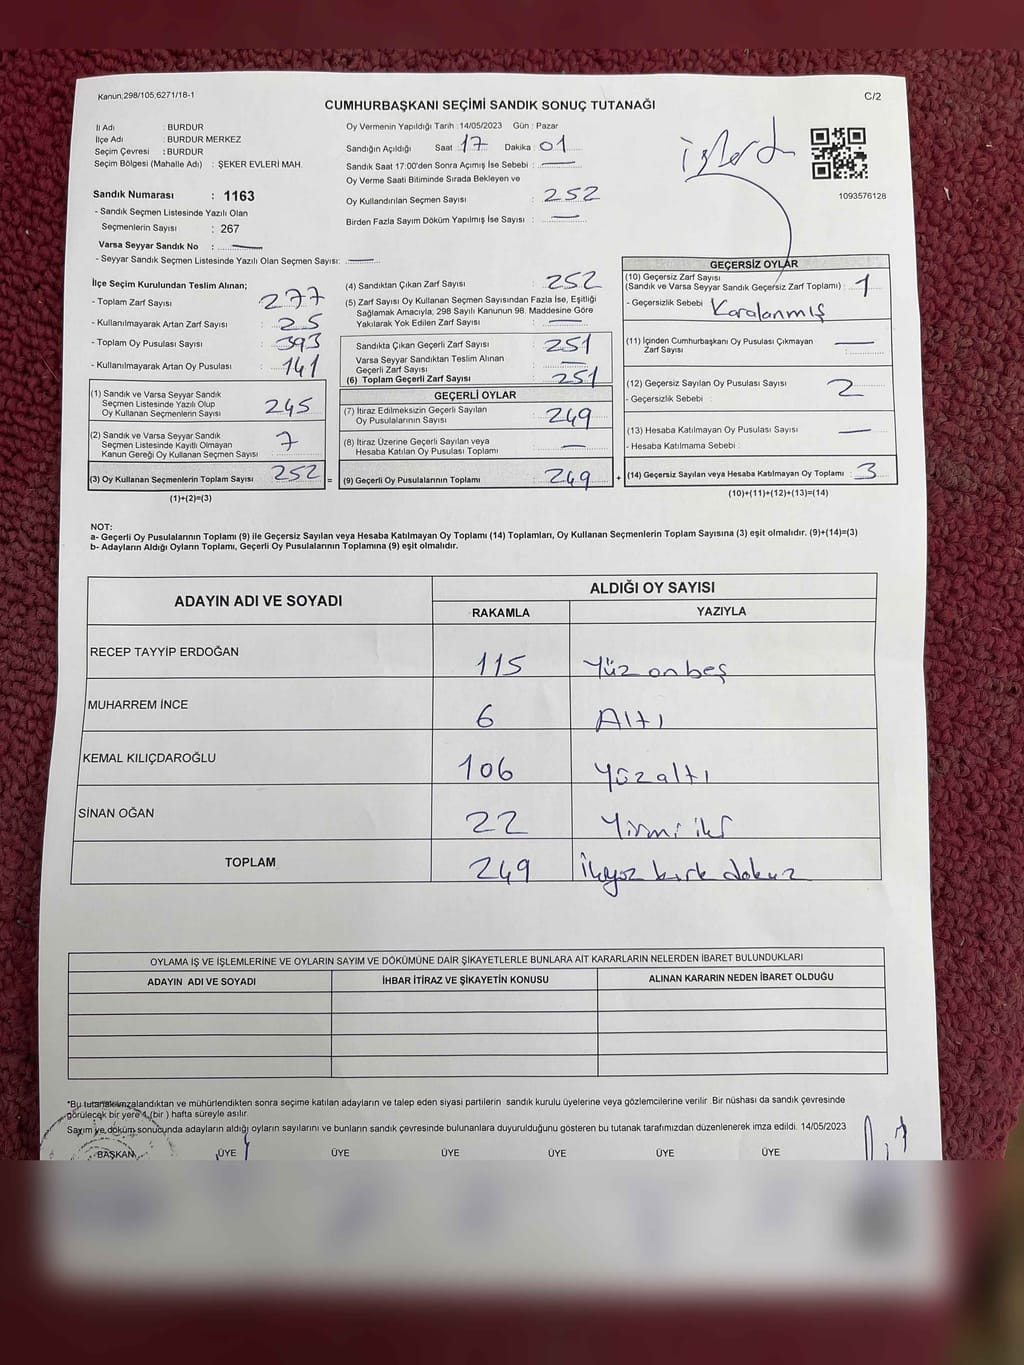 Kanun,298/105,6271/18-1
CUMHURBAŞKANI SEÇİMİ SANDIK SONUÇ TUTANAĞI
C/2
İl Adı : BURDUR
İlçe Adı : BURDUR MERKEZ
Seçim Çevresi : BURDUR
Seçim Bölgesi (Mahalle Adı) : ŞEKER EVLERİ MAH.
Sandık Numarası : 1163
- Sandık Seçmen Listesinde Yazılı Olan
Seçmenlerin Sayısı : 267
Varsa Seyyar Sandık No : —
- Seyyar Sandık Seçmen Listesinde Yazılı Olan Seçmen Sayısı: —
Oy Vermenin Yapıldığı Tarih :14/05/2023 Gün : Pazar
Sandığın Açıldığı Saat : 17 Dakika : 01
Sandık Saat 17:00'den Sonra Açımış İse Sebebi : —
Oy Verme Saati Bitiminde Sırada Bekleyen ve
Oy Kullandırılan Seçmen Sayısı : 252
Birden Fazla Sayım Döküm Yapılmış İse Sayısı : —
işlend
1093576128
İlçe Seçim Kurulundan Teslim Alınan;
- Toplam Zarf Sayısı : 277
- Kullanılmayarak Artan Zarf Sayısı : 25
- Toplam Oy Pusulası Sayısı : 393
- Kullanılmayarak Artan Oy Pusulası : 141
(1) Sandık ve Varsa Seyyar Sandık
Seçmen Listesinde Yazılı Olup
Oy Kullanan Seçmenlerin Sayısı : 245
(2) Sandık ve Varsa Seyyar Sandık
Seçmen Listesinde Kayıtlı Olmayan
Kanun Gereği Oy Kullanan Seçmen Sayısı : 7
(3) Oy Kullanan Seçmenlerin Toplam Sayısı : 252 =
(1)+(2)=(3)
(4) Sandıktan Çıkan Zarf Sayısı : 252
(5) Zarf Sayısı Oy Kullanan Seçmen Sayısından Fazla İse, Eşitliği
Sağlamak Amacıyla, 298 Sayılı Kanunun 98. Maddesine Göre
Yakılarak Yok Edilen Zarf Sayısı : —
Sandıkta Çıkan Geçerli Zarf Sayısı : 251
Varsa Seyyar Sandıktan Teslim Alınan
Geçerli Zarf Sayısı : —
(6) Toplam Geçerli Zarf Sayısı : 251
GEÇERLİ OYLAR
(7) İtiraz Edilmeksizin Geçerli Sayılan
Oy Pusulalarının Sayısı : 249
(8) İtiraz Üzerine Geçerli Sayılan veya
Hesaba Katılan Oy Pusulası Toplamı : —
(9) Geçerli Oy Pusulalarının Toplamı : 249 +
GEÇERSİZ OYLAR
(10) Geçersiz Zarf Sayısı
(Sandık ve Varsa Seyyar Sandık Geçersiz Zarf Toplamı) : 1
- Geçersizlik Sebebi : Karalanmış
(11) İçinden Cumhurbaşkanı Oy Pusulası Çıkmayan
Zarf Sayısı : —
(12) Geçersiz Sayılan Oy Pusulası Sayısı : 2
- Geçersizlik Sebebi :
(13) Hesaba Katılmayan Oy Pusulası Sayısı : —
- Hesaba Katılmama Sebebi :
(14) Geçersiz Sayılan veya Hesaba Katılmayan Oy Toplamı : 3
(10)+(11)+(12)+(13)=(14)
NOT:
a- Geçerli Oy Pusulalarının Toplamı (9) ile Geçersiz Sayılan veya Hesaba Katılmayan Oy Toplamı (14) Toplamları, Oy Kullanan Seçmenlerin Toplam Sayısına (3) eşit olmalıdır. (9)+(14)=(3)
b- Adayların Aldığı Oyların Toplamı, Geçerli Oy Pusulalarının Toplamına (9) eşit olmalıdır.
ADAYIN ADI VE SOYADI
ALDIĞI OY SAYISI
RAKAMLA YAZIYLA
RECEP TAYYİP ERDOĞAN 115 Yüz onbeş
MUHARREM İNCE 6 Altı
KEMAL KILIÇDAROĞLU 106 Yüzaltı
SİNAN OĞAN 22 Yirmi iki
TOPLAM 249 İkiyüz kırk dokuz
OYLAMA İŞ VE İŞLEMLERİNE VE OYLARIN SAYIM VE DÖKÜMÜNE DAİR ŞİKAYETLERLE BUNLARA AİT KARARLARIN NELERDEN İBARET BULUNDUKLARI
ADAYIN ADI VE SOYADI İHBAR İTİRAZ VE ŞİKAYETİN KONUSU ALINAN KARARIN NEDEN İBARET OLDUĞU
*Bu tutanak imzalandıktan ve mühürlendikten sonra seçime katılan adayların ve talep eden siyasi partilerin sandık kurulu üyelerine veya gözlemcilerine verilir. Bir nüshası da sandık çevresinde
görülecek bir yere 1 (bir) hafta süreyle asılır.
Sayım ve döküm sonucunda adayların aldığı oyların sayılarını ve bunların sandık çevresinde bulunanlara duyurulduğunu gösteren bu tutanak tarafımızdan düzenlenerek imza edildi. 14/05/2023
BAŞKAN ÜYE ÜYE ÜYE ÜYE ÜYE ÜYE